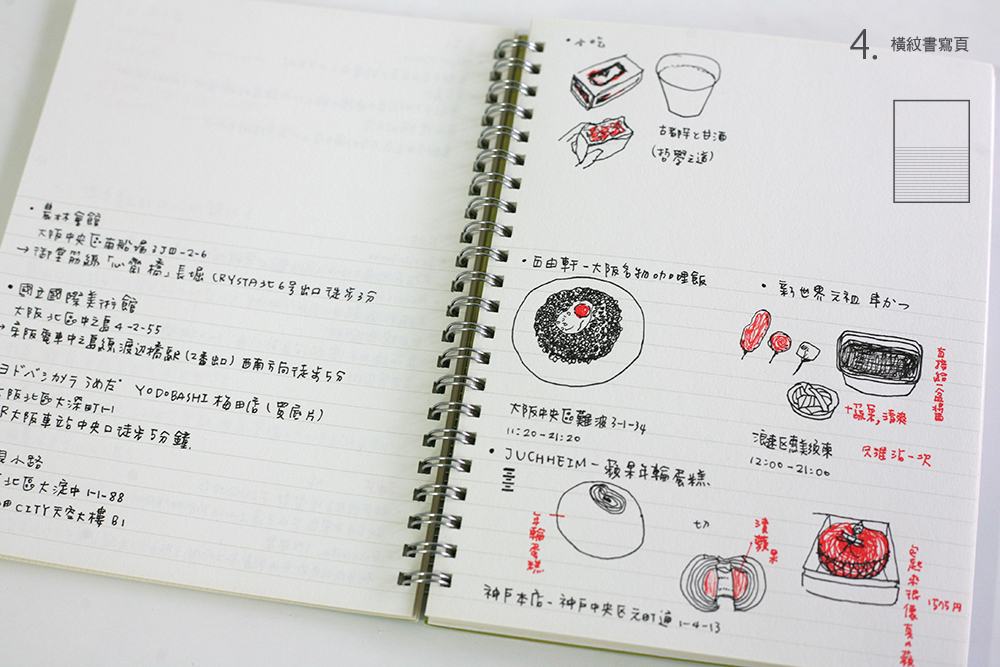 • 農林會館
大阪中央區南船場3丁目-2-6
→御堂筋線「心齋橋」長堀CRYSTA北6号出口徒步3分
• 國立國際美術館
大阪北區中之島4-2-55
京阪電車中之島線渡辺橋駅(2番出口)西南方向徒步5分
ヨドバシカメラうめだ YODOBASHI 梅田店(買底片)
大阪北區大深町1-1
JR大阪車站中央口徒步5分鐘.
小路
北區大淀中1-1-88
CITY天空大樓B1
4. 橫紋書寫頁
• 小吃
と甘酒
(哲學之道)
• 自由軒-大阪名物咖哩飯
大阪中央區難波3-1-34
11:20-21:20
• 新世界元祖 串かつ
直接給一盒醬
蔬菜,清爽
只准沾一次
浪速区恵美須東
12:00-21:00
• JUCHHEIM-蘋果年輪蛋糕
年輪蛋糕
切
漬蘋果
很像真的蘋
1575円
神戸本店-神戸中央区元町通1-4-13